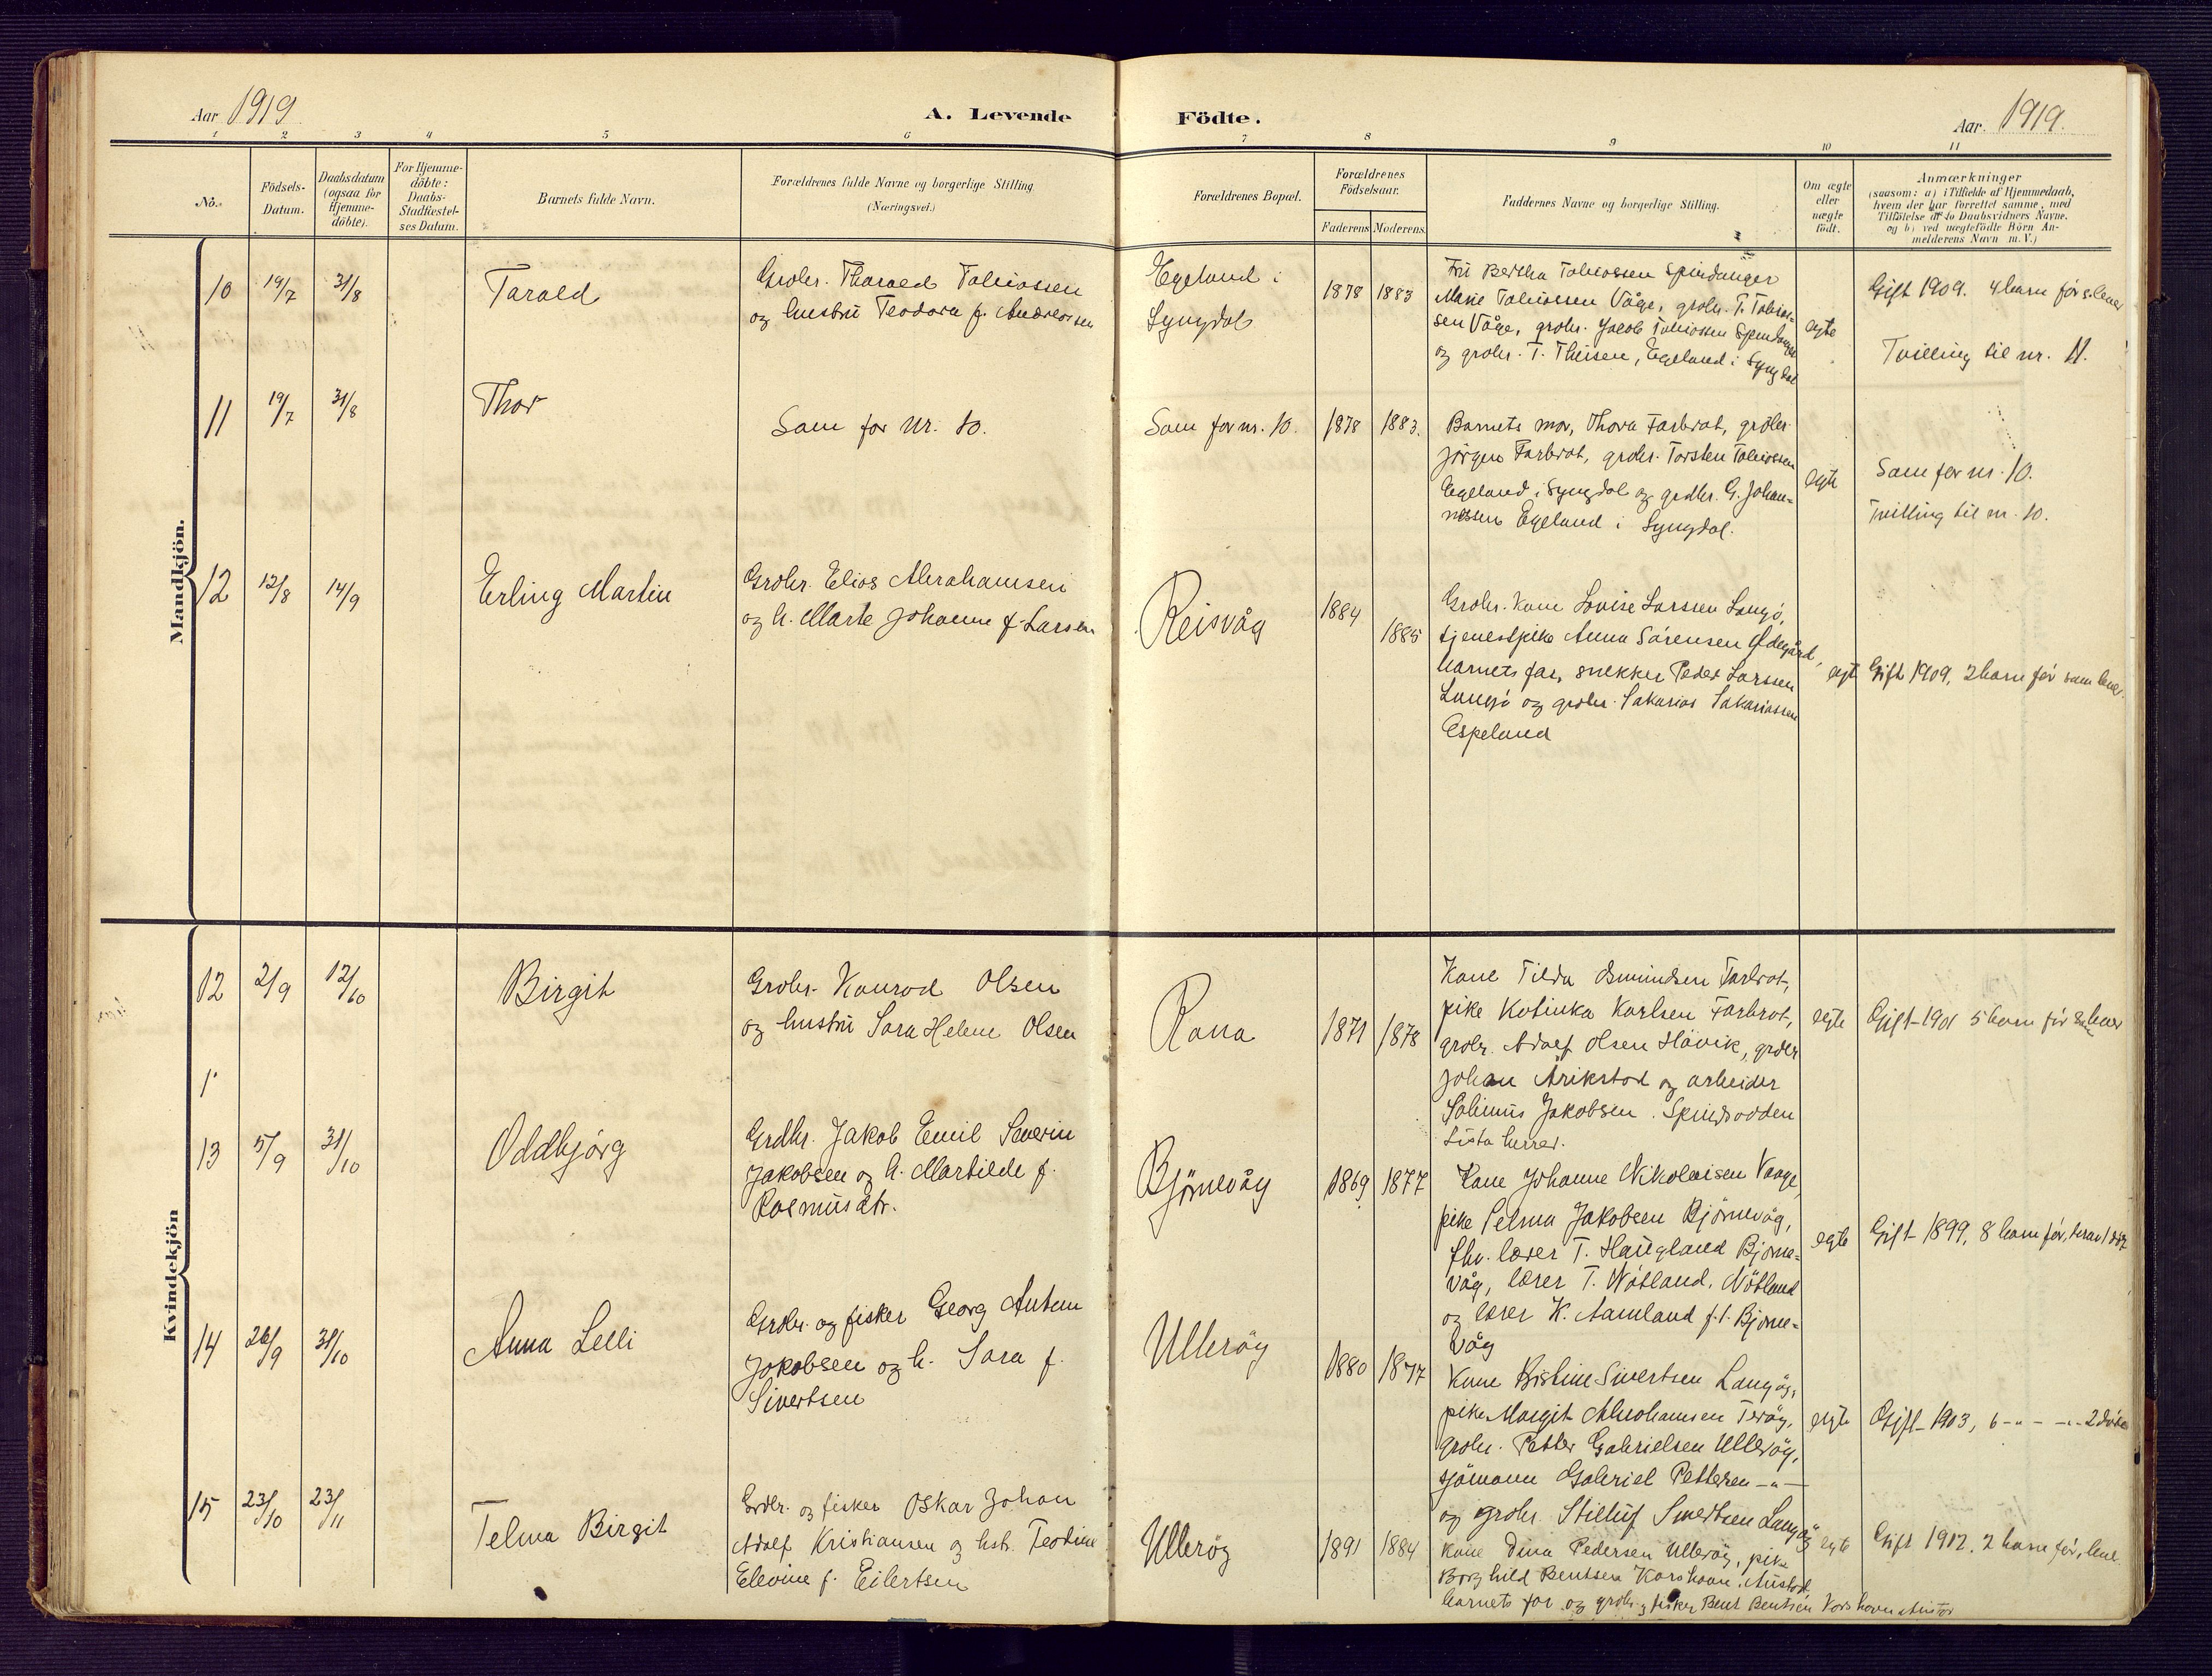 Aar 1919
A. Levende
Födte.
Aar. 1919.
1 2 3 4 5 6 7 8 9 10 11
No.
Födsels-
Datum.
Daabsdatum
(ogsaa for
Hjemme-
döbte).
For Hjemme-
döbte:
Daabs-
Stadfæstel-
ses Datum.
Barnets fulde Navn.
Forældrenes fulde Navne og borgerlige Stilling
(Næringsvei.)
Forældrenes Bopæl.
Forældrenes
Födselsaar.
Faderens Moderens.
Faddernes Navne og borgerlige Stilling.
Om ægte
eller
uægte
födt.
Anmærkninger
(saasom: a) i Tilfælde af Hjemmedaab,
hvem der har forrettet samme, med
Tilföielse af to Daabsvidners Navne.
og b) ved uægtefödte Börn An-
melderens Navn m. V.)
Mandkjön.
10 19/7 31/8
Tarald
Grdbr. Tharald Tobiassen
og hustru Teodora f. Andreassen
Egeland i
Lyngdal
1878 1883
Fru Bertha Tobiassen Spindanger
Marie Tobiassen Våge, grdbr. T. Tobias-
sen Våge, grdbr. Jacob Tobiassen Spindanger
og grdbr. T. Theisen, Egeland i Lyngdal
egte
Gift 1909. 4 barn för s. lever
Tvilling til nr. 11.
11 19/7 31/8
Thor
Som for nr. 10.
Som for nr. 10.
1878 1883.
Barnets mor, Thora Farbrot, grdbr.
Jörgen Farbrot, grdbr. Torsten Tobiassen
Egeland i Lyngdal og grdbr. G. Johan-
nessen Egeland i Lyngdal.
egte
Som for nr. 10.
Tvilling til nr. 10.
12 12/8 14/9
Erling Martin
Grdbr. Elias Abrahamsen
og h. Marte Johanne f. Larsen
Reisvåg
1884
1885
Grdbr. kone Lovise Larssen Langö,
tjenestpike Anna Sörensen Ödegård,
barnets far, snekker Peder Larssen
Langö og grdbr. Sakarias Sakariassen
Espeland
egte
Gift 1909, 2 barn för som lever.
Kvindekjön
12 2/9 12/10
Birgit
Grdbr. Konrad Olsen
og hustru Sara Helene Olsen
Rana
1871 1878
Kone Tilda Osmundsen Farbrot,
pike Katinka Karlsen Farbrot,
grdbr. Adolf Olsen Hävik, grdbr.
Johan Årikstad og arbeider
Salinus Jakobsen. Spindsodden
Lista herrer.
egte
Gift 1901 5 barn för som lever
1
13 5/9 31/10
Oddbjörg
Grdbr. Jakob Emil Severin
Jakobsen og h. Martilde f.
Rasmusdtr.
Björnevåg
1869 1877
Kone Johanne Nikolaisen Vaage,
pike Selma Jakobsen Björnevåg,
fhv. lærer T. Haugland Björne-
våg, lærer T. Nötland, Nötland
og lærer K. Aamland f.t. Björne-
våg
egte
Gift 1899, 8 barn för, herav 1 död
14 26/9 31/10
Anna Lelli
Grdbr. og fisker Georg Anton
Jakobsen og h. Sara f.
Sivertsen
Ulleröy
1880 1877
Kone Kistine Sivertsen Langöy,
pike Margit Abrahamsen Teröy,
grdbr. Petter Gabrielsen Ulleröy,
sjömann Gabriel Pettersen -"-
og grdbr. Sivertsen Langöy
egte
Gift 1903, 6 -"- -"- 2 döde
15 23/10 23/11
Telma Birgit
Grdbr. og fisker Oskar Johan
Adolf Kristiansen og hst. Teodine
Elevine f. Eilertsen
Ulleröy
1891 1884
Kone Dina Pedersen Ulleröy, pike
Borghild Bentsen Korshavn, Austad
barnets far og grdbr. og fisker Bent Bentsen Korshavn Austad
egte
Gift 1912. 2 barn för, lever.